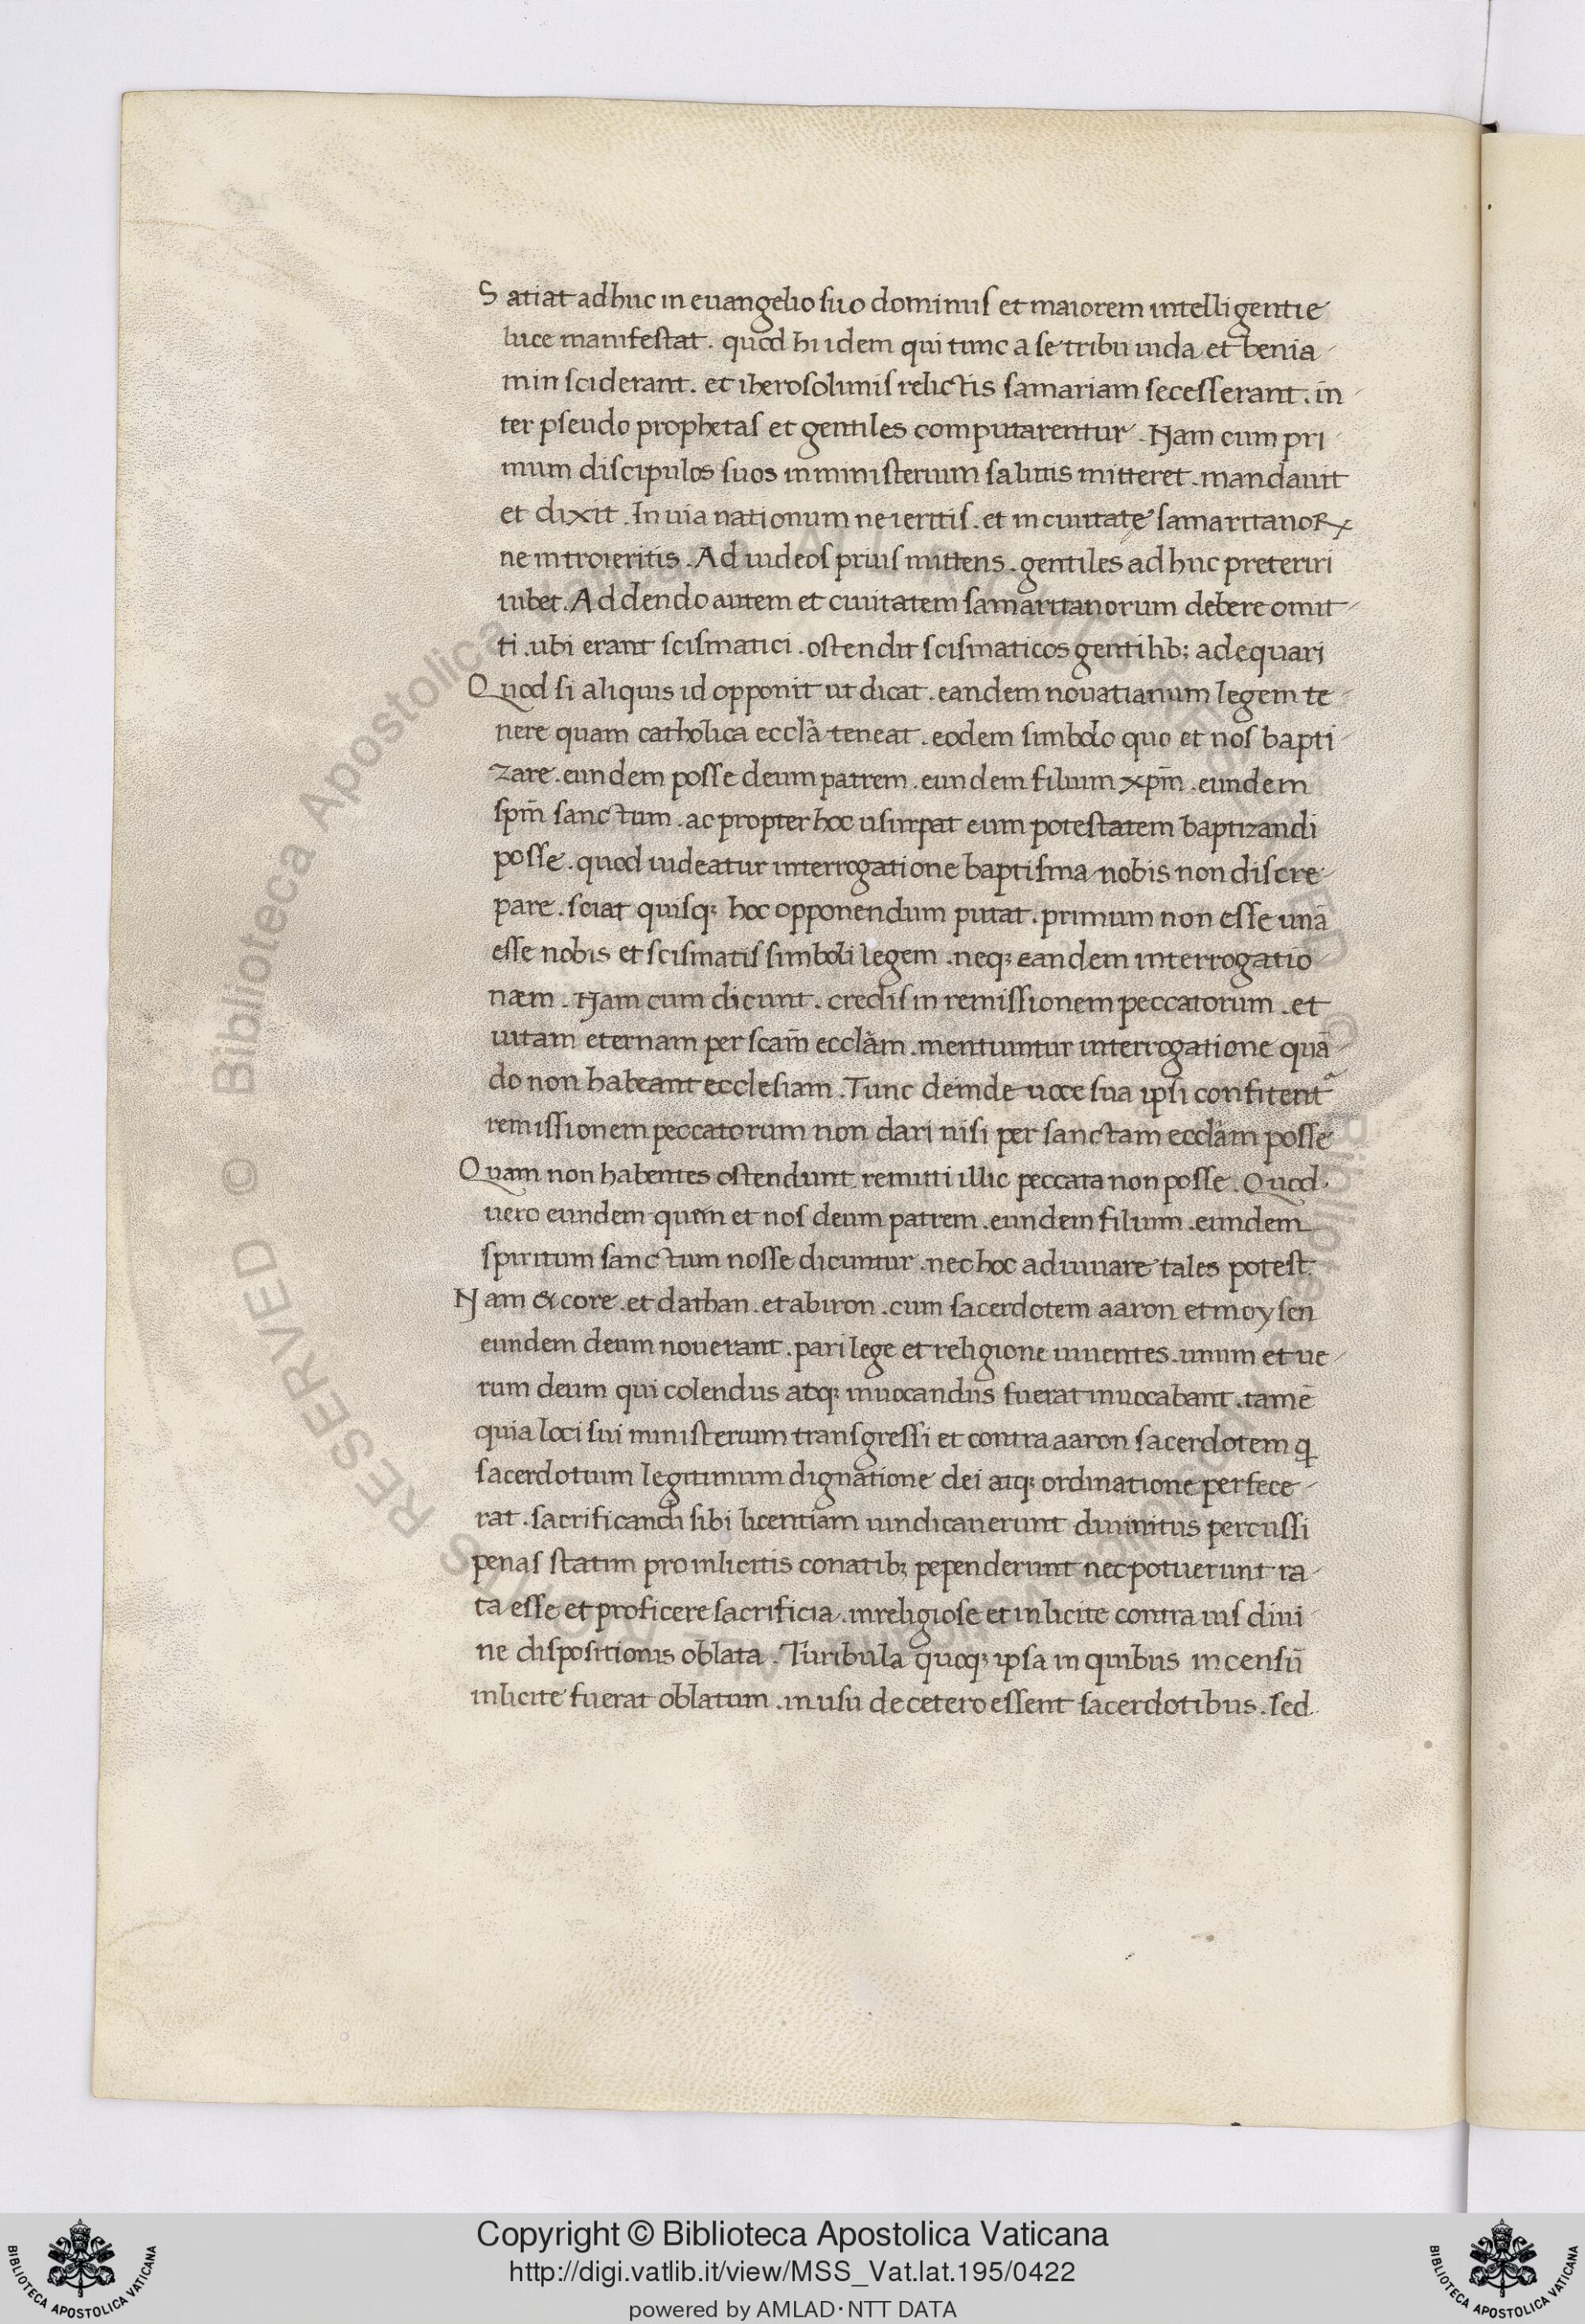 Satiat adhuc in euangelio suo dominus et maiorem intelligentie
luce manifestat. quod hi idem qui tunc a se tribu iuda et benia-
min sciderant. et iherosolimis relictis samariam secesserant. in-
ter pseudo prophetas et gentiles computarentur. Nam cum pri-
mum discipulos suos in ministerium salutis mitteret. mandauit
et dixit. In uia nationum ne ieritis. et in ciuitatē samaritanoꝝ
ne introieritis. Ad iudeos prius mittens. gentiles adhuc preteriri
iubet. Addendo autem et ciuitatem samaritanorum debere omit-
ti. ubi erant scismatici. ostendit scismaticos gentilib; adequari
Quod si aliquis id opponit ut dicat. eandem nouatianum legem te-
nere quam catholica ecclā teneat. eodem simbolo quo et nos bapti-
zare. eundem posse deum patrem. eundem filium xp̄m. eundem
sp̄m sanctum. ac propter hoc usurpat eum potestatem baptizandi
posse. quod uideatur interrogatione baptisma nobis non discre-
pare. sciat quisq; hoc opponendum putat. primum non esse unā
esse nobis et scismatis simboli legem. neq; eandem interrogatio
næm. Nam cum dicunt. credis in remissionem peccatorum. et
uitam eternam per scam̄ ecclām. mentiuntur interrogatione quā-
do non habeant ecclesiam. Tunc deinde uoce sua ipsi confitent᷑
remissionem peccatorum non dari nisi per sanctam ecclām posse
Quam non habentes ostendunt remitti illic peccata non posse. Quod
uero eundem quem et nos deum patrem. eundem filium. eundem
spiritum sanctum nosse dicuntur. nec hoc adiuuare tales potest.
Nam & core. et dathan. et abiron. cum sacerdotem aaron et moysen
eundem deum nouerant. pari lege et religione uiuentes. unum et ue-
rum deum qui colendus atq; inuocandus fuerat inuocabant. tamē
quia loci sui ministerium transgressi et contra aaron sacerdotem q̇
sacerdotium legitimum dignatione dei atq; ordinatione perfece-
rat. sacrificandi sibi licentiam uindicauerunt diuinitus percussi
penas statim pro inlicitis conatib; pependerunt nec potuerunt ra-
ta esse et proficere sacrificia. inreligiose et inlicite contra ius diui-
ne dispositionis oblata. Turibula quoq; ipsa in quibus incensū
inlicite fuerat oblatum. in usu de cetero essent sacerdotibus. sed
Copyright © Biblioteca Apostolica Vaticana
http://digi.vatlib.it/view/MSS_Vat.lat.195/0422
powered by AMLAD·NTT DATA